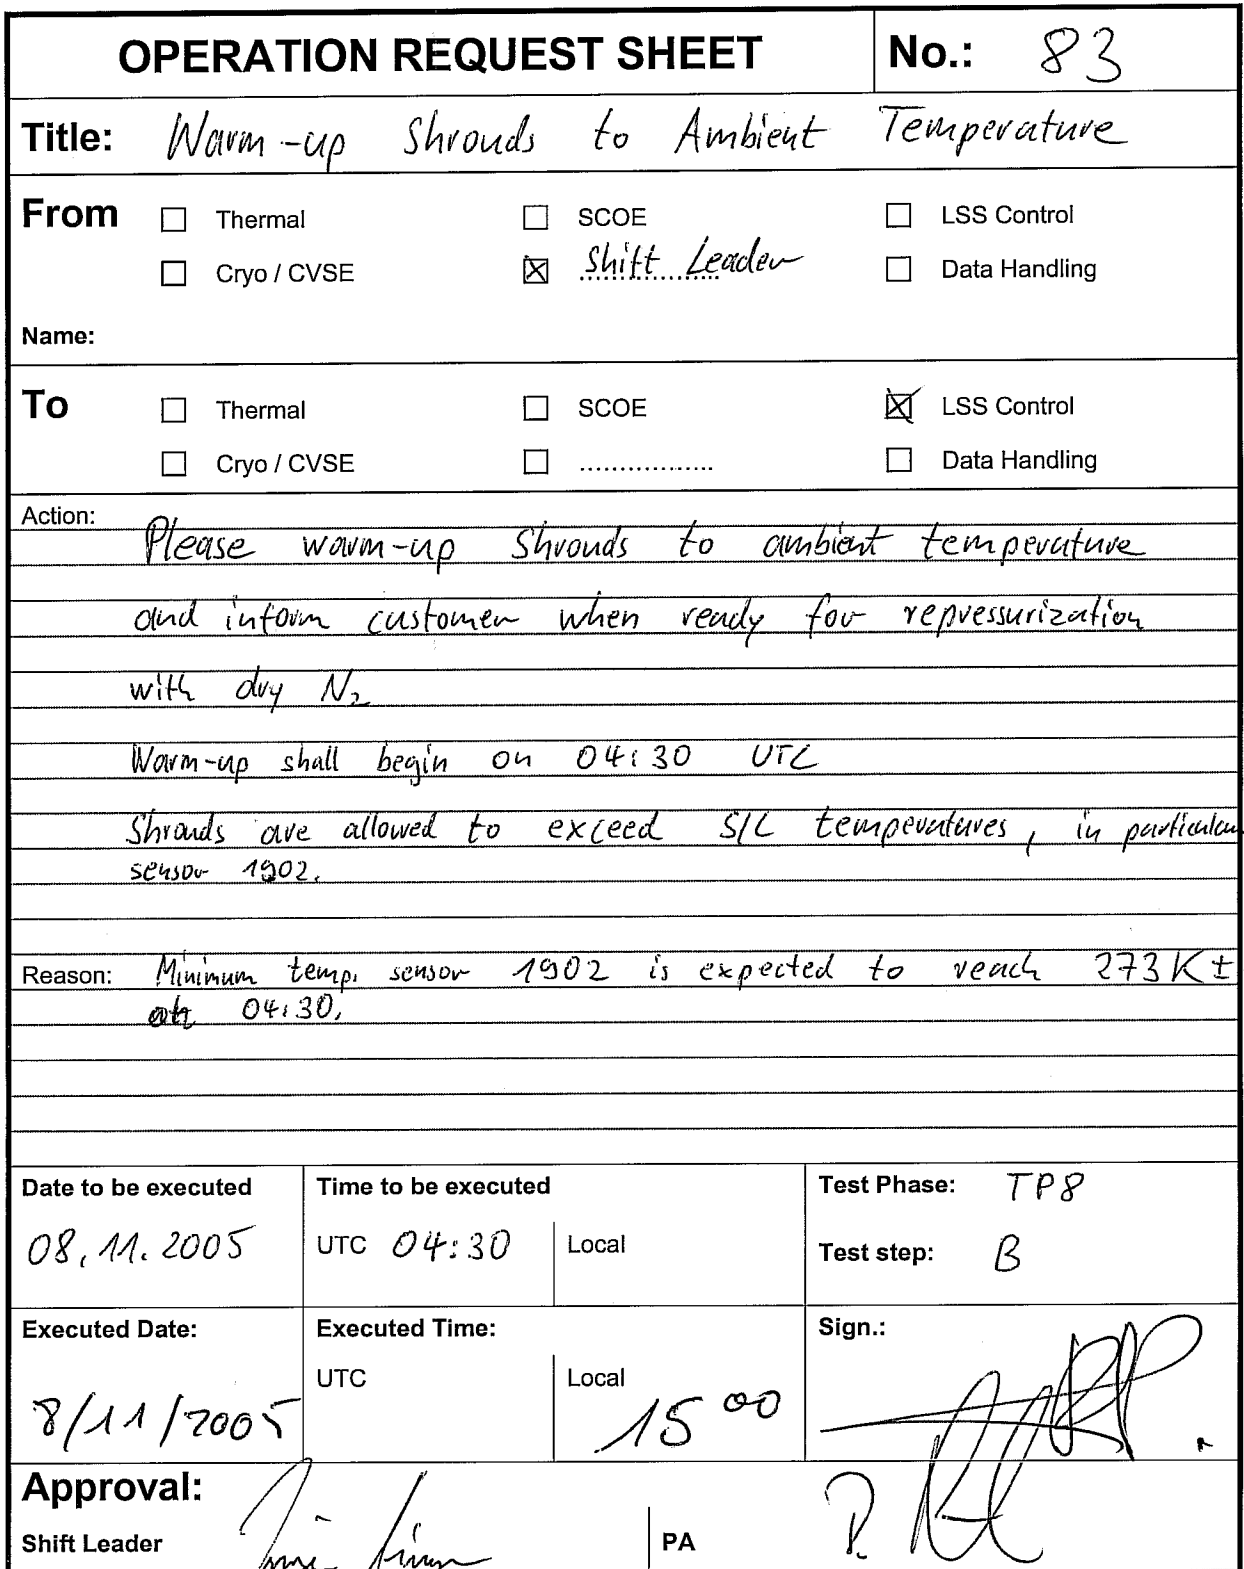 OPERATION REQUEST SHEET No.: 83
Title: Warm-up Shrouds to Ambient Temperature
From Thermal SCOE LSS Control
Cryo / CVSE Shift Leader Data Handling
Name:
To Thermal SCOE LSS Control
Cryo / CVSE .................. Data Handling
Action:
Please warm-up Shrouds to ambient temperature
and inform customer when ready for repressurization
with dry N₂
Warm-up shall begin on 04:30 UTC
Shrouds are allowed to exceed S/C temperatures, in particular
sensor 1902.
Reason: Minimum temp. sensor 1902 is expected to reach 273K ±
04:30.
Date to be executed Time to be executed Test Phase: TP8
08.11.2005 UTC 04:30 Local Test step: B
Executed Date: Executed Time: Sign.:
8/11/2005 UTC Local 15⁰⁰
Approval:
Shift Leader PA